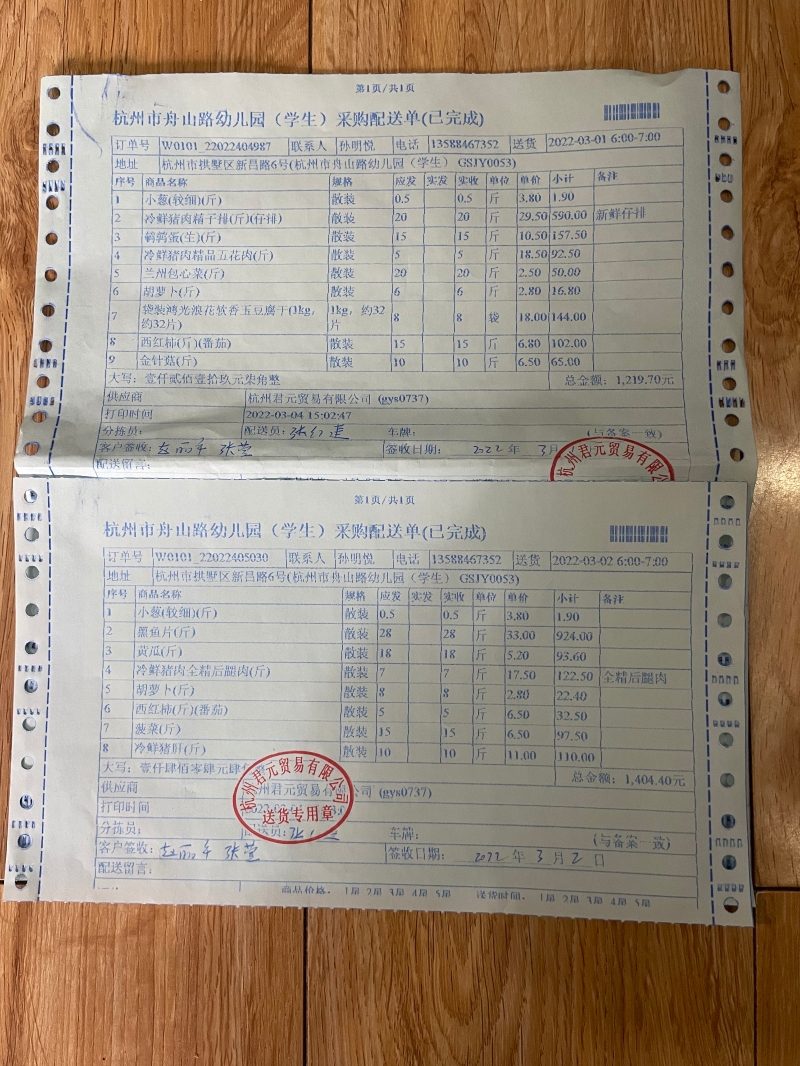 第1页/共1页
杭州市舟山路幼儿园（学生）采购配送单(已完成)
订单号 W0101_22022404987 联系人 孙明悦 电话 13588467352 送货 2022-03-01 6:00-7:00
地址 杭州市拱墅区新昌路6号(杭州市舟山路幼儿园（学生） GSJY0053)
序号 商品名称 规格 应发 实发 实收 单位 单价 小计 备注
1 小葱(较细)(斤) 散装 0.5 0.5 斤 3.80 1.90
2 冷鲜猪肉精子排(斤)(仔排) 散装 20 20 斤 29.50 590.00 新鲜仔排
3 鹌鹑蛋(生)(斤) 散装 15 15 斤 10.50 157.50
4 冷鲜猪肉精品五花肉(斤) 散装 5 5 斤 18.50 92.50
5 兰州包心菜(斤) 散装 20 20 斤 2.50 50.00
6 胡萝卜(斤) 散装 6 6 斤 2.80 16.80
7 袋装鸿光浪花软香玉豆腐干(1kg，约32片) 1kg，约32片 8 8 袋 18.00 144.00
8 西红柿(斤)(番茄) 散装 15 15 斤 6.80 102.00
9 金针菇(斤) 散装 10 10 斤 6.50 65.00
大写：壹仟贰佰壹拾玖元柒角整 总金额：1,219.70元
供应商 杭州君元贸易有限公司 (gys0737)
打印时间 2022-03-04 15:02:47
分拣员： 配送员： 车牌： (与备案一致)
客户签收： 张萱 签收日期： 2022 年 3月
配送留言：
杭州君元贸易有限公
第1页/共1页
杭州市舟山路幼儿园（学生）采购配送单(已完成)
订单号 W0101_22022405030 联系人 孙明悦 电话 13588467352 送货 2022-03-02 6:00-7:00
地址 杭州市拱墅区新昌路6号(杭州市舟山路幼儿园（学生） GSJY0053)
序号 商品名称 规格 应发 实发 实收 单位 单价 小计 备注
1 小葱(较细)(斤) 散装 0.5 0.5 斤 3.80 1.90
2 黑鱼片(斤) 散装 28 28 斤 33.00 924.00
3 黄瓜(斤) 散装 18 18 斤 5.20 93.60
4 冷鲜猪肉全精后腿肉(斤) 散装 7 7 斤 17.50 122.50 全精后腿肉
5 胡萝卜(斤) 散装 8 8 斤 2.80 22.40
6 西红柿(斤)(番茄) 散装 5 5 斤 6.50 32.50
7 菠菜(斤) 散装 15 15 斤 6.50 97.50
8 冷鲜猪肝(斤) 散装 10 10 斤 11.00 110.00
大写：壹仟肆佰零肆元肆 总金额：1,404.40元
供应商 州君元贸易有 公司 (gys0737)
打印时间
杭州君元贸易有限公司
送货专用章
分拣员： 车牌： (与备案一致)
客户签收： 张萱 签收日期： 2022 年 3 月 2 日
配送留言：
商品价格： 1星 2星 3星 4星 5星 送货时间： 1星 2星 3星 4星 5星